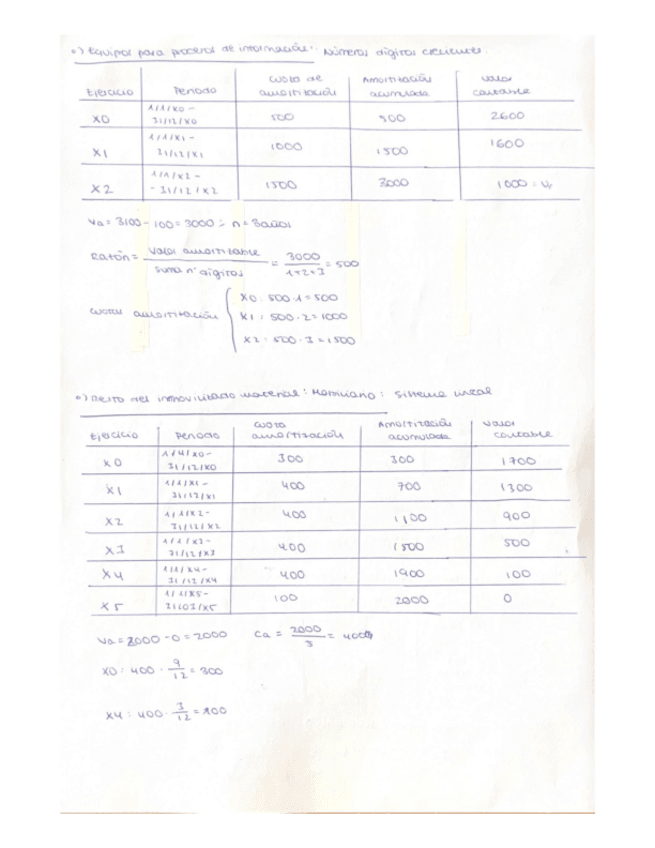 •) Equipos para procesos de información: Números dígitos crecientes.
Ejercicio Periodo Cuota de amortización Amortización acumulada Valor contable
X0 1/1/X0 - 31/12/X0 500 500 2600
X1 1/1/X1 - 31/12/X1 1000 1500 1600
X2 1/1/X2 - - 31/12/X2 1500 3000 1000 : Vr
Va = 3100 - 100 = 3000 ; n = 3 años
Ratón = Valor amortizable / Suma nº dígitos = 3000 / 1+2+3 = 500
Cuotas amortización
X0 : 500 · 1 = 500
X1 : 500 · 2 = 1000
X2 : 500 · 3 = 1500
•) Resto del inmovilizado material: Mobiliario: Sistema lineal
Ejercicio Periodo Cuota amortización Amortización acumulada Valor contable
X0 1/4/X0 - 31/12/X0 300 300 1700
X1 1/1/X1 - 31/12/X1 400 700 1300
X2 1/1/X2 - 31/12/X2 400 1100 900
X3 1/1/X3 - 31/12/X3 400 1500 500
X4 1/1/X4 - 31/12/X4 400 1900 100
X5 1/1/X5 - 31/03/X5 100 2000 0
Va = 2000 - 0 = 2000 Ca = 2000 / = 400
X0 : 400 · 9/12 = 300
X4 : 400 · 3/12 = 100